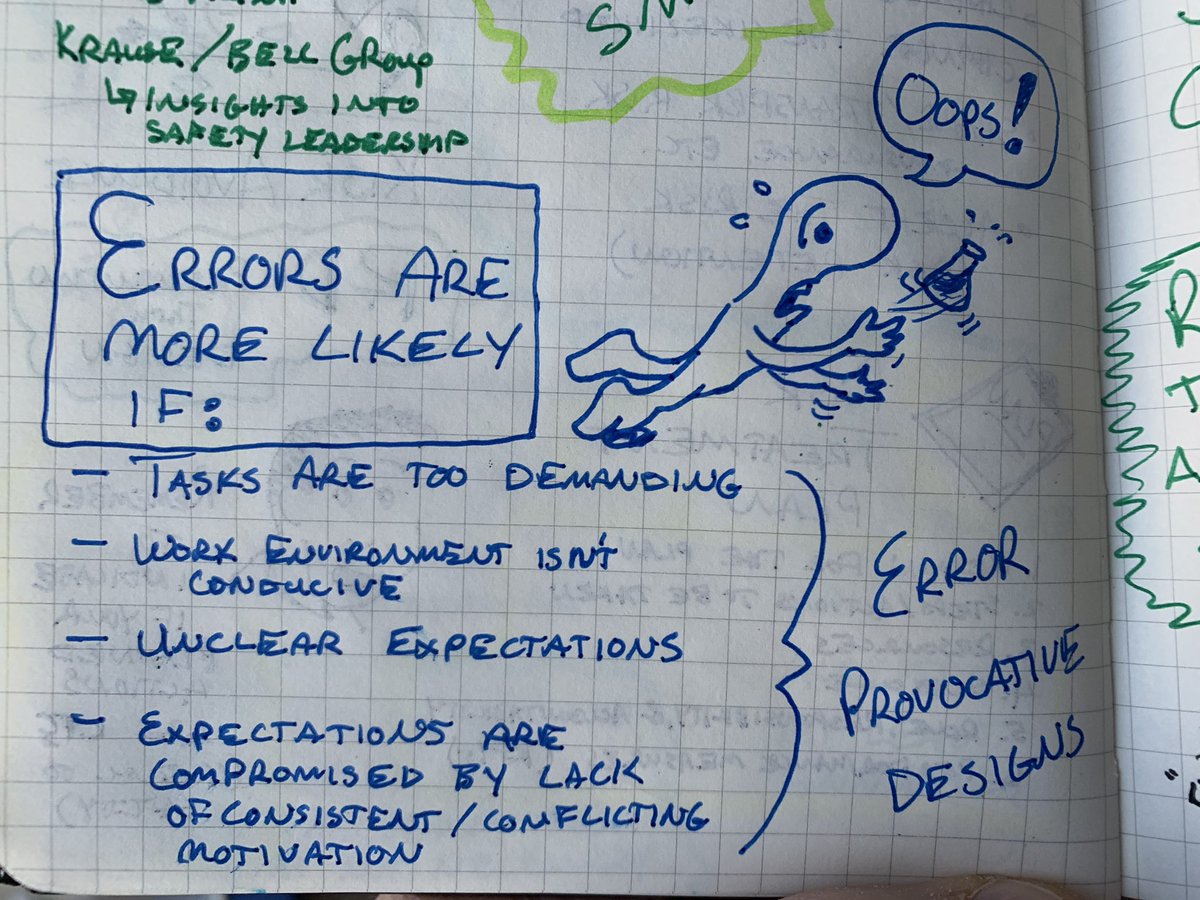 KRAUSE/BELL GROUP
↳ INSIGHTS INTO
SAFETY LEADERSHIP
OOPS!
ERRORS ARE
MORE LIKELY
IF:
- TASKS ARE TOO DEMANDING
- WORK ENVIRONMENT ISN'T
CONDUCIVE
- UNCLEAR EXPECTATIONS
- EXPECTATIONS ARE
COMPROMISED BY LACK
OF CONSISTENT/CONFLICTING
MOTIVATION
ERROR
PROVOCATIVE
DESIGNS